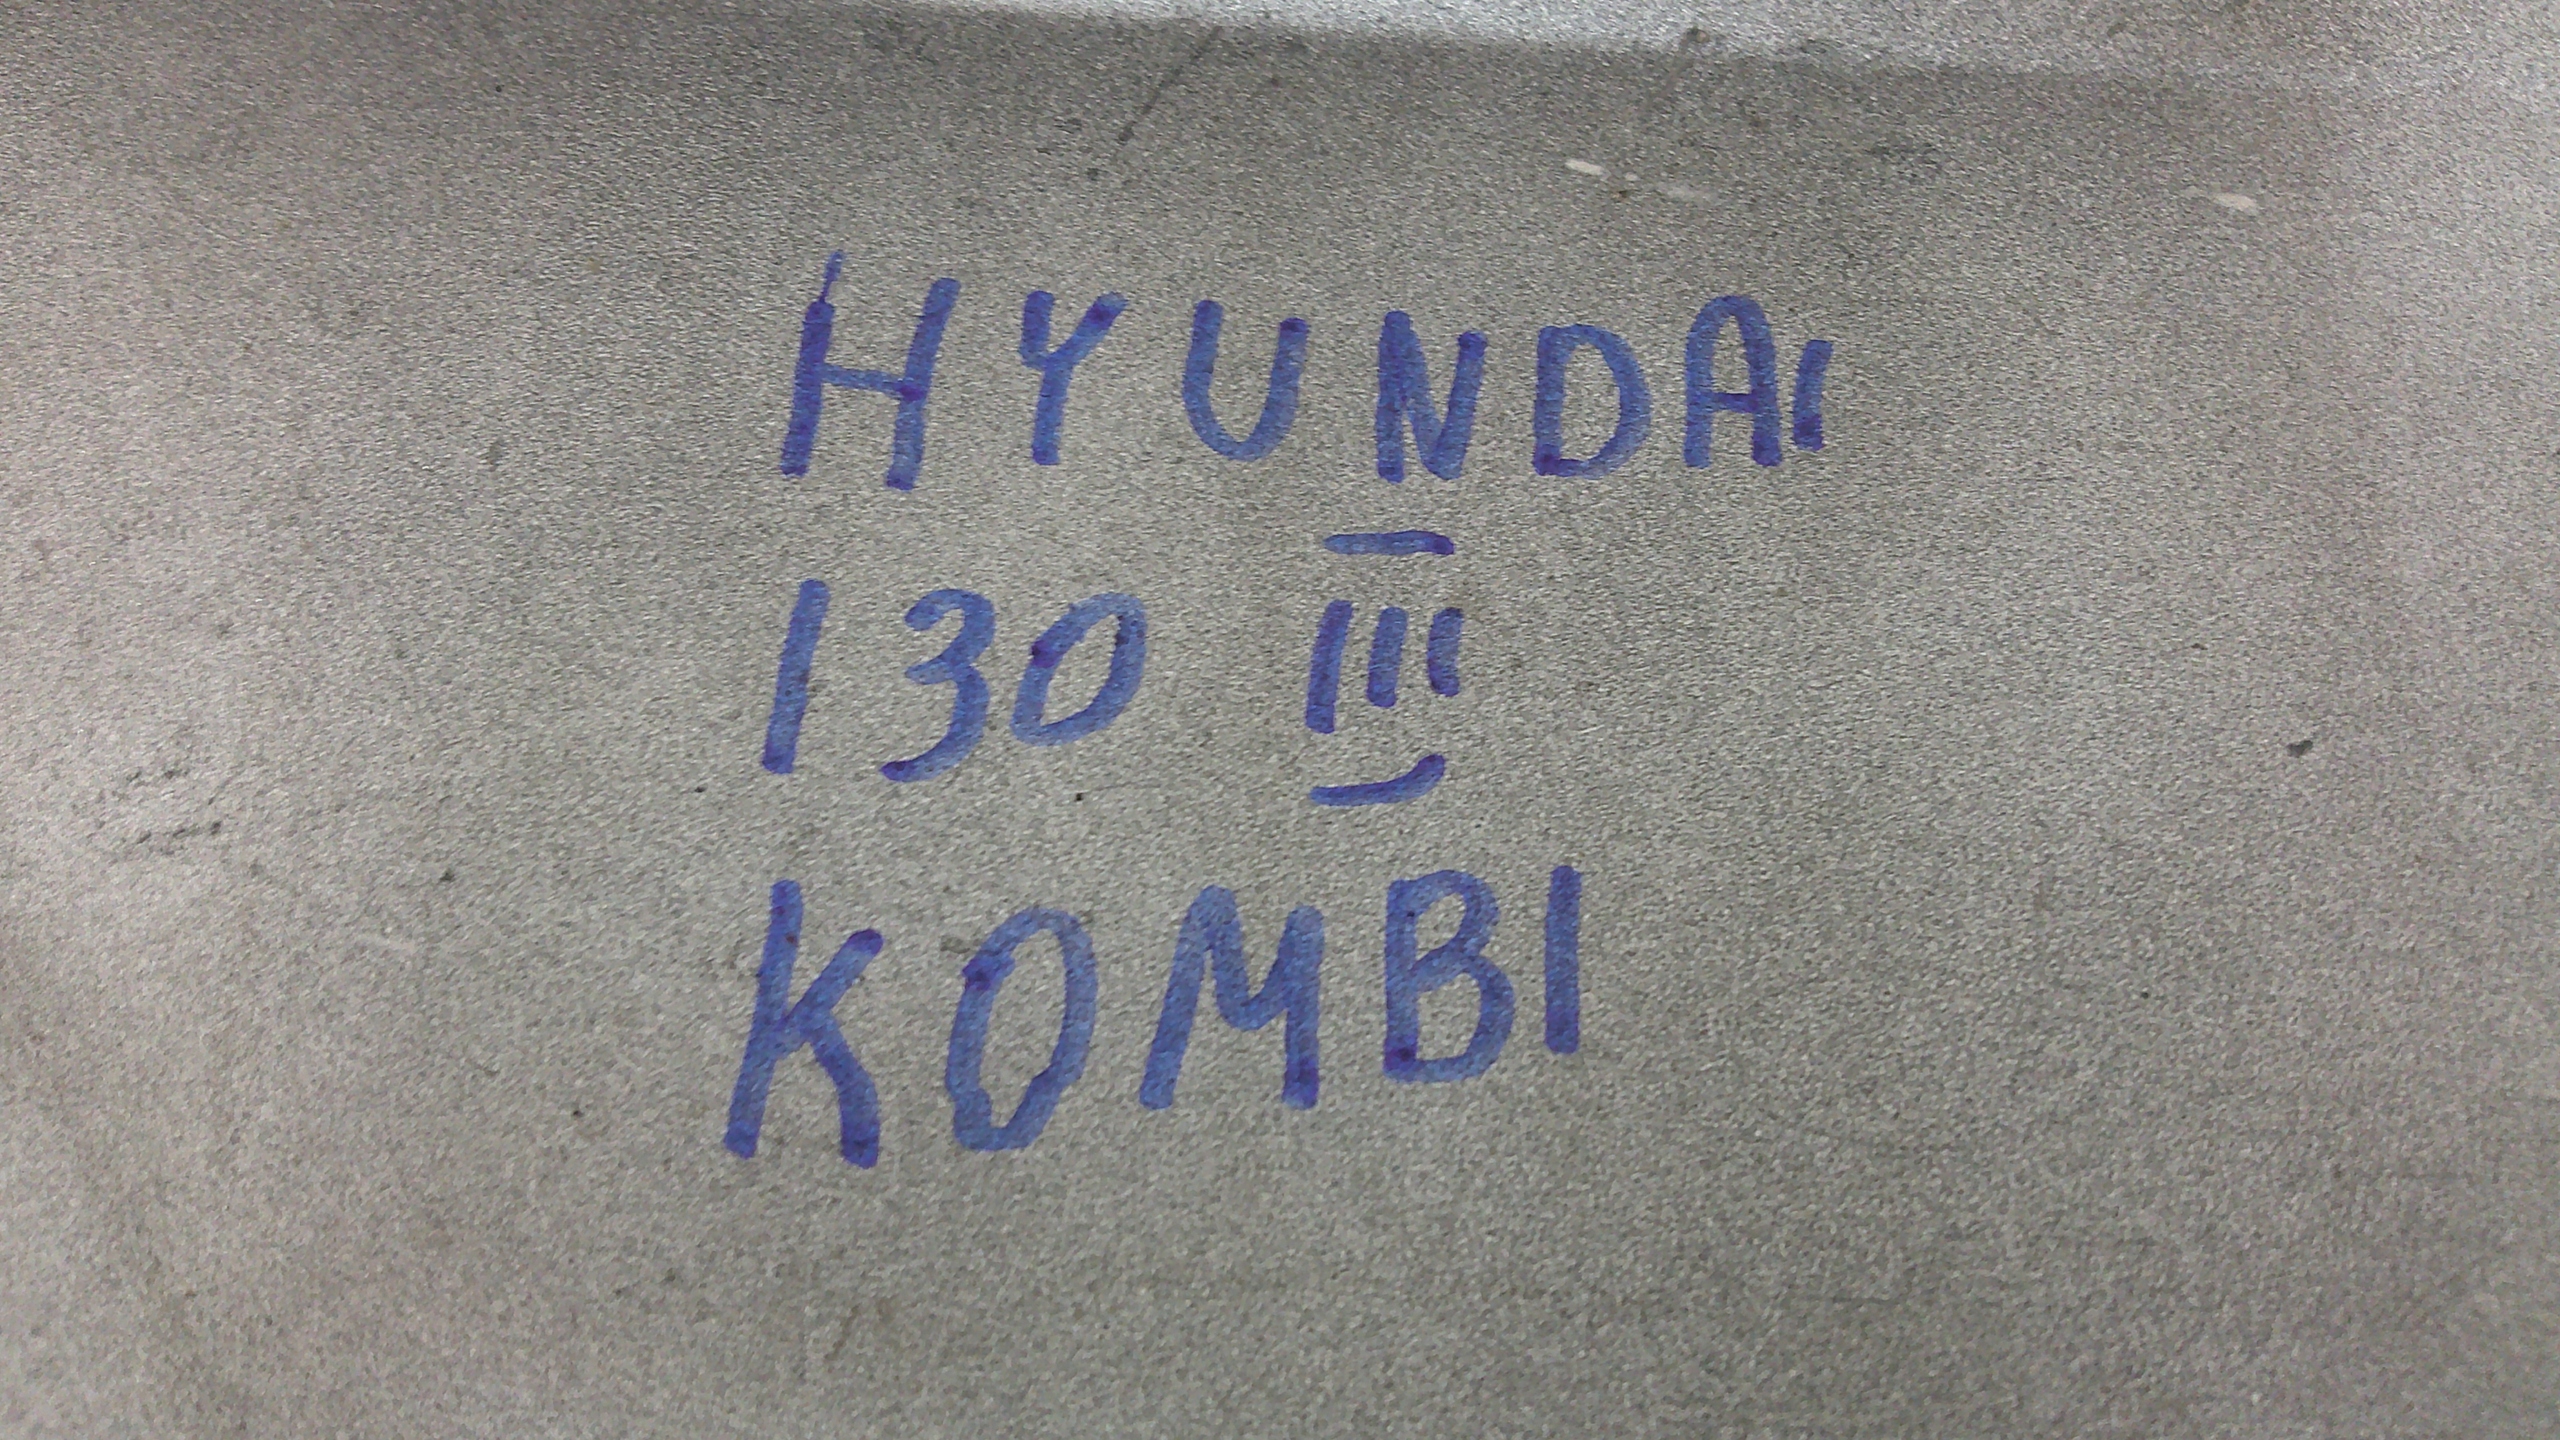 HYUNDAI
I30 III
KOMBI